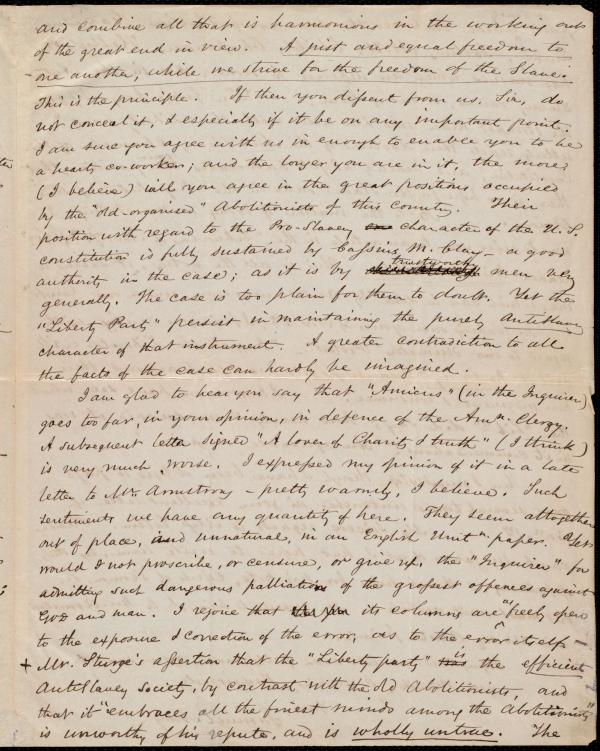 and combine all that is harmonious in the working out
of the great end in view. A just and equal freedom to
one another, while we strive for the freedom of the Slave.
This is the principle. If then you dissent from us, Sir, do
not conceal it, & especially if it be on any important point.
I am sure you agree with us in enough to enable you to be
a hearty co-worker; and the longer you are in it, the more
(I believe) will you agree in the great positions occupied
by the "old-organised" Abolitionists of this Country. Their
position with regard to the Pro-Slavery character of the U.S.
constitution is fully sustained by Cassius M. Clay - a good
authority in the case; as it is by trustworthy men very
generally. The case is too plain for them to doubt. Yet the
"Liberty Party" persist in maintaining the purely AntiSlavery
character of that instrument. A greater contradiction to all
the facts of the case can hardly be imagined.
I am glad to hear you say that "Amicus" (in the Inquirer)
goes too far, in your opinion, in defence of the Amn. Clergy.
A subsequent letter signed "A lover of Charity & truth" (I think)
is very much worse. I expressed my opinion of it in a late
letter to Mr. Armstrong - pretty warmly, I believe. Such
sentiments we have any quantity of here. They seem altogether
out of place, and unnatural, in an English Unitn. paper. Yet
would I not proscribe, or censure, or give up, the "Inquirer" for
admitting such dangerous palliations of the grossest offences against
God and man. I rejoice that its columns are "freely open
to the exposure & correction of the error, as to the error itself -
+ Mr. Sturge's assertion that the "Liberty party" is the efficient
AntiSlavery Society, by contrast with the old Abolitionists, and
that it "embraces all the finest minds among the Abolitionists"
is unworthy of his repute, and is wholly untrue. The